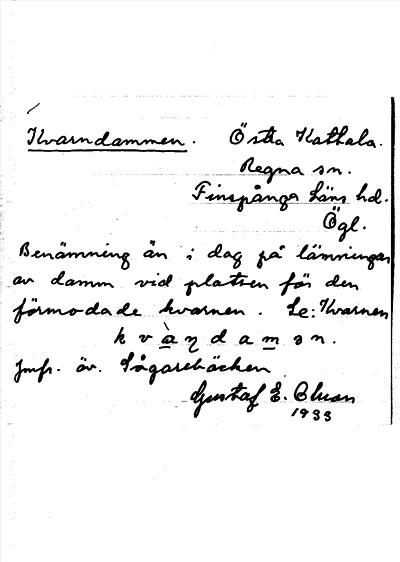 Kvarndammen. Östra Kathala.
Regna sn.
Finspånga Läns hd.
Ögl.
Benämning än i dag på lämningar
av damm vid platsen för den
förmodade kvarnen. Se: Kvarnen
kvàṇdamən.
Jmfr. äv. Sågarebäcken
Gustaf E. Olson
1933